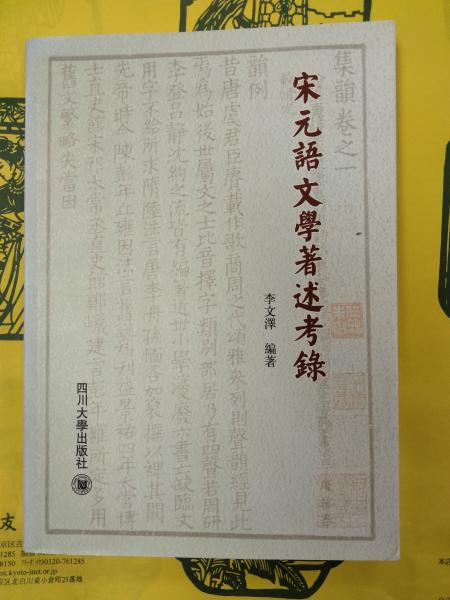 宋元語文學著述考錄
李文澤 編著
四川大學出版社
集韻卷之一
韻例
昔唐虞君臣賡載作歌商周之代頌雅參列則聲韻經見此
焉為始後世屬文之士比音擇字類別部居乃有四聲若周研
李登呂靜沈約之流皆有編著
用字不給所求隋陸法言唐李舟孫愐各加裒撰以裨其闕
先帝時令陳彭年丘雍因法言韻就為刊益景祐四年太常博
士直史館宋祁太常丞直史館鄭戩建言彭年雍所定多用
舊文繁略失當因
友
京区古
1285
8150 0120-761285
ox.kyoto-inet.or.jp
区北白川東小倉町23番地
本店